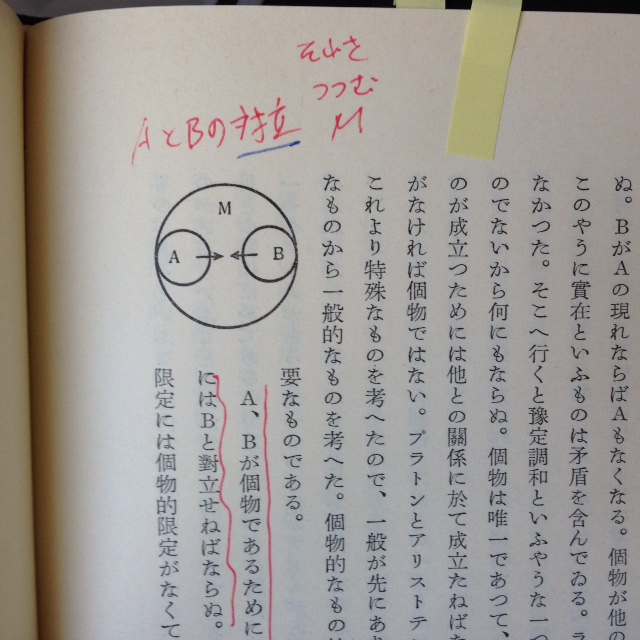 それを
つつむ
M
AとBの対立
ぬ。BがAの現れならばAもなくなる。個物が他の
このやうに實在といふものは矛盾を含んでゐる。ラ
なかつた。そこへ行くと豫定調和といふやうな一
のでないから何にもならぬ。個物は唯一であつて、
のが成立つためには他との關係に於て成立たねばな
がなければ個物ではない。プラトンとアリストテ
これより特殊なものを考へたので、一般が先にあ
なものから一般的なものを考へた。個物的なもの
要なものである。
M
A
B
A、Bが個物であるために
にはBと對立せねばならぬ。
限定には個物的限定がなくて